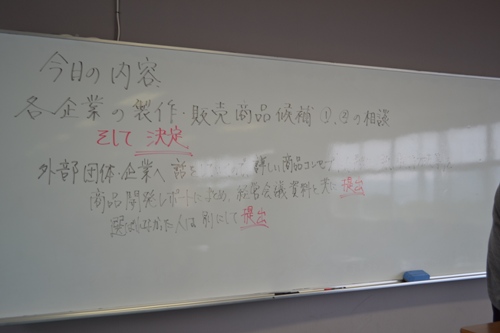 今日の内容
各企業の製作・販売商品候補①、②の相談
そして 決定
外部団体・企業へ 話を 詳しい商品コンセプ
商品開発レポートにまとめ、経営会議資料と共に提出
選ばれなかった人は別にして提出